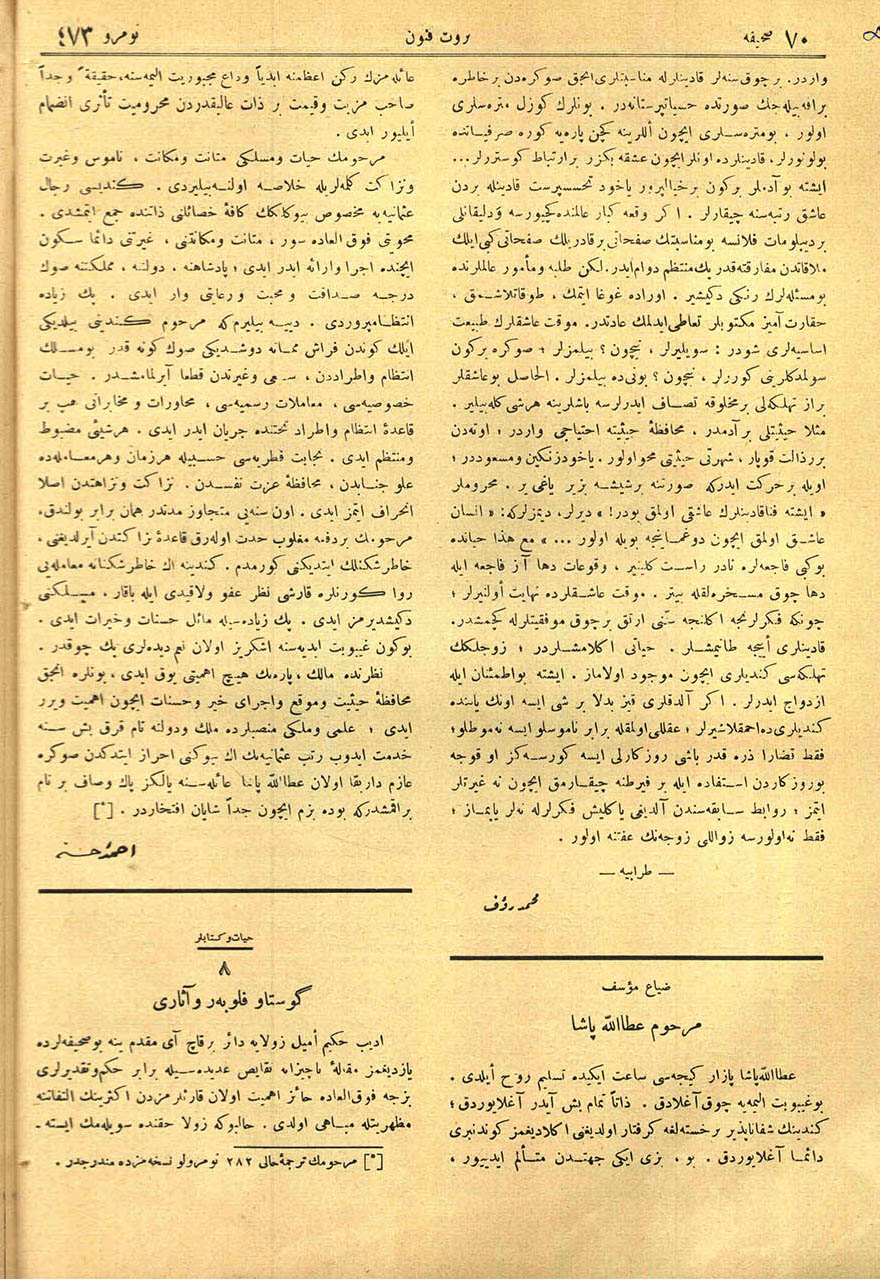 ٧٠ صحیفه
ثروت فنون
نومرو ٤٧٣
واردر. برچوق سنه‌لر قادینلرله مناسبتلری انجق صوكره‌دن بر خاطره
براقه‌بیله‌جك صورتده حسیاتپرستانه‌در . بونلرك كوزل متره‌سلری
اولور ، بومتره‌سلری ایچون أللرینه كچن پاره‌یه كوره صرفیاتده
بولونورلر. قادینلرده اونلر ایچون عشقه بكزر بر ارتباط كوسترلر...
ایشته بو آدملر بركون برخیالپرور یاخود تحسسپرست قادینله بردن
عاشق رتبه‌سنه چیقارلر . اكر وقعه كبار عالمنده كچیورسه و دلیقانلی
بر دیپلومات فلانسه بومناسبتك صفحاتی برقادریلك صفحاتی كبی ایلك
ملاقاتدن مفارقته قدر پك منتظم دوام ایدر. لكن طلبه ومأمور عالملرنده
بومسئله‌لرك رنكی دكیشیر . اوراده غوغا ایتمك ، طوقاتلاشمق ،
حقارت آمیز مكتوبلر تعاطی ایدلمك عادتدر. موقت عاشقلرك طبیعت
اساسیه‌لری شودر : سویلیرلر ، نیچون ؟ بیلمزلر ؛ صوكره بركون
سولمدكلرینی كوررلر ، نیچون ؟ بونی‌ده بیلمزلر . الحاصل بوعاشقلر
براز تهلكه‌لی بر مخلوقه تصادف ایدرلرسه باشلرینه هرشی كله‌بیلیر .
مثلا حیثیتلی بر آدمدر ، محافظهٔ حیثیته احتیاجی واردر ؛ اوته‌دن
بررذالت قوپار ، شهرتی حیثیتی محو اولور . یاخود زنكین ومسعوددر ؛
اویله برحركت ایدركه صورتنه برشیشه بزیر یاغی یر . محروملر
« ایشته فناقادینلرك عاشقی اولمق بودر! » دیرلر، دیمزلركه: « انسان
عاشق اولمق ایچون دوغماینجه بویله اولور ... » مع هذا حیاتده
بوكبی فاجعه‌لره نادر راست كلنیر ، وقوعات دها آز فاجعه ایله
دها چوق مسخره‌لقله بیتر . موقت عاشقلرده نهایت أولنیرلر ؛
چونكه فكرلرنجه اكلنجه سنّی ارتق برچوق موفقیتلرله كچمشدر.
قادینلری أییجه طانیمشلر . حیاتی اكلامشلردر ؛ زوجلكك
تهلكه‌سی كندیلری ایچون موجود اولاماز . ایشته بواطمئنان ایله
ازدواج ایدرلر . اكر آلدقلری قیز بدلا بر شی ایسه اونك یاننده
كندیلری‌ده احمقلاشیرلر ؛ عقللی اولمقله برابر ناموسلو ایسه نه‌موطلو ؛
فقط تضارا ذره قدر باشی روزكارلی ایسه كورسه‌كز او قوجه
بوروزكاردن استفاده ایله بر فیرطنه چیقارمق ایچون نه غیرتلر
ایتمز ؛ روابط سابقه‌سندن آلدیغی یاكلیش فكرلرله نه‌لر یاپماز ؛
فقط نه‌اولورسه زواللی زوجه‌نك عفتنه اولور .
— طرابیه —
محمد رؤف
ضیاع مؤسف
مرحوم عطاالله پاشا
عطاالله پاشا پازار كیجه‌سی ساعت ایكیده تسلیم روح أیلدی .
بوغیبوبت الیمه‌یه چوق آغلادق . ذاتاً تمام بش آیدر آغلایوردق ؛
كندینك شفاناپذیر برخسته‌لغه كرفتار اولدیغی اكلادیغمز كوندنبری
دائما آغلایوردق . بو ، بزی ایكی جهتدن متألم ایدییور ،
عائله‌مزك ركن اعظمنه ابدیاً وداع مجبوریت الیمه‌سنه، حقیقةً وجداً
صاحب مزیت وقیمت بر ذات عالیقدردن محرومیت تأثری انضمام
أیلیور ایدی .
مرحومك حیات ومسلكی متانت ومكانت ، ناموس وغیرت
ونزاكت كلمه‌لریله خلاصه اولنه‌بیلیردی . كندیسی رجال
عثمانیه‌یه مخصوص بیوكلكك كافهٔ خصائلنی ذاتنده جمع ایتمشدی .
محویتی فوق العاده سور ، متانت ومكانتنی ، غیرتنی دائما سكون
ایچنده اجرا وارائه ایدر ایدی ؛ پادشاهنه ، دولتنه ، مملكتنه صوك
درجه صداقت و محبت و رعایتی وار ایدی . پك زیاده
انتظامپروردی . دییه بیلیرم كه مرحوم كندینی بیلدیكی
ایلك كوندن فراش مماته دوشدیكی صوك كونه قدر بومسلك
انتظام واطراددن ، سعی وغیرتدن قطعا آیرلمامشدر . حیات
خصوصیه‌سی ، معاملات رسمیه‌سی ، محاورات و مخابراتی هپ بر
قاعدهٔ انتظام واطراد تحتنده جریان ایدر ایدی . هرشیئی مضبوط
ومنتظم ایدی . نجابت فطریه‌سی حسبیله هرزمان وهرمعامله‌ده
علو جنابدن ، محافظهٔ عزت نفسدن . نزاكت ونزاهتدن اصلا
انحراف ایتمز ایدی . اون سنه‌یی متجاوز مدتدر همان برابر بولندق.
مرحومك بردفعه مغلوب حدت اوله‌رق قاعدهٔ نزاكتدن آیرلدیغنی ،
خاطر شكنلك ایتدیكنی كورمدم . كندینه اك خاطرشكنانه معامله‌یی
روا كورنلره قارشی نظر عفو ولاقیدی ایله باقار ، مسلكنی
دكیشدیرمز ایدی . پك زیاده‌سیله مائل حسنات وخیرات ایدی .
بوكون غیبوبت ابدیه‌سنه اشكریز اولان نعم دیده‌لری پك چوقدر .
نظرنده مالك ، پاره‌نك هیچ اهمیتی یوق ایدی ، بونلره انجق
محافظهٔ حیثیت وموقع واجرای خیر وحسنات ایچون اهمیت ویرر
ایدی ؛ علمی وملكی منصبلرده ملك ودولته تام قرق بش سنه
خدمت ایدوب رتب عثمانیه‌نك اك بیوكنی احراز ایتدكدن صوكره
عازم داربقا اولان عطاالله پاشا عائله‌سنه یالكز پاك وصاف بر نام
براقمشدركه بوده بزم ایچون جداً شایان افتخاردر . [*]
حیات و كتابلر
٨
گوستاو فلوبەر و آثاری
ادیب حكیم أمیل زولایه دائر برقاچ آی مقدم ینه بوصحیفه‌لرده
یازدیغمز مقالهٔ ناچیزانه نقایص عدیده‌سیله برابر حكم وتقدیرلری
بزجه فوق‌العاده حائز اهمیت اولان قارئلرمزدن اكثرینك التفاتنه
مظهریتله مباهی اولدی . حالبوكه زولا حقنده سویله‌مك ایسته-
[*] مرحومك ترجمهٔ حالی ٢٨٢ نومرولو نسخه‌مزده مندرجدر .